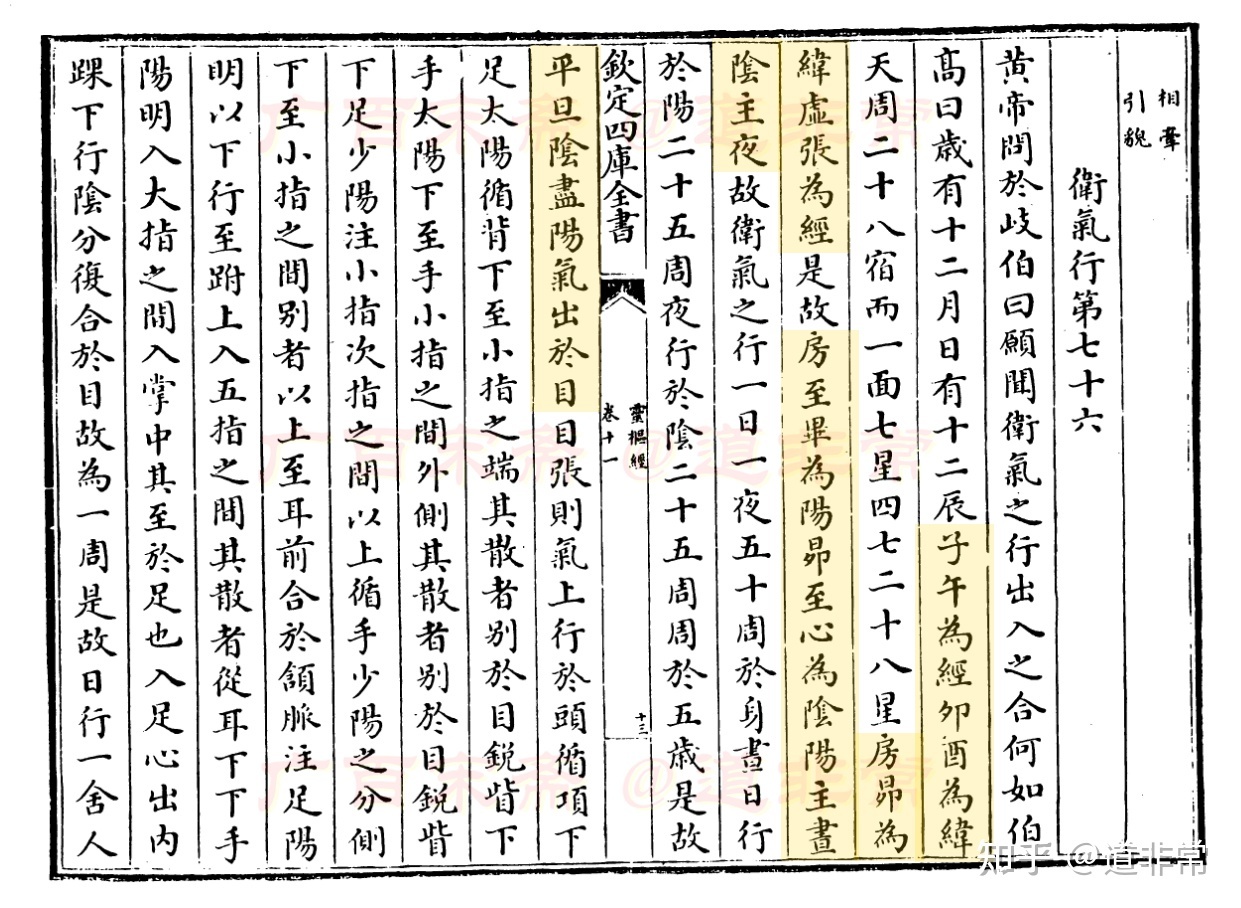 相牽
引貌
衛氣行第七十六
黄帝問於岐伯曰願聞衛氣之行出入之合何如伯
髙曰歳有十二月日有十二辰子午為經卯酉為緯
天周二十八宿而一面七星四七二十八星房昴為
緯虛張為經是故房至畢為陽昴至心為隂陽主晝
隂主夜故衛氣之行一日一夜五十周於身晝日行
於陽二十五周夜行於隂二十五周周於五歳是故
欽定四庫全書
靈樞經
卷十一
十三
平旦隂盡陽氣出於目目張則氣上行於頭循項下
足太陽循背下至小指之端其散者别於目鋭眥下
手太陽下至手小指之間外側其散者别於目鋭眥
下足少陽注小指次指之間以上循手少陽之分側
下至小指之間别者以上至耳前合於頷脈注足陽
明以下行至跗上入五指之間其散者從耳下下手
陽明入大指之間入掌中其至於足也入足心出内
踝下行隂分復合於目故為一周是故日行一舍人
@道非常
@道非常
@道非常
知乎 @道非常